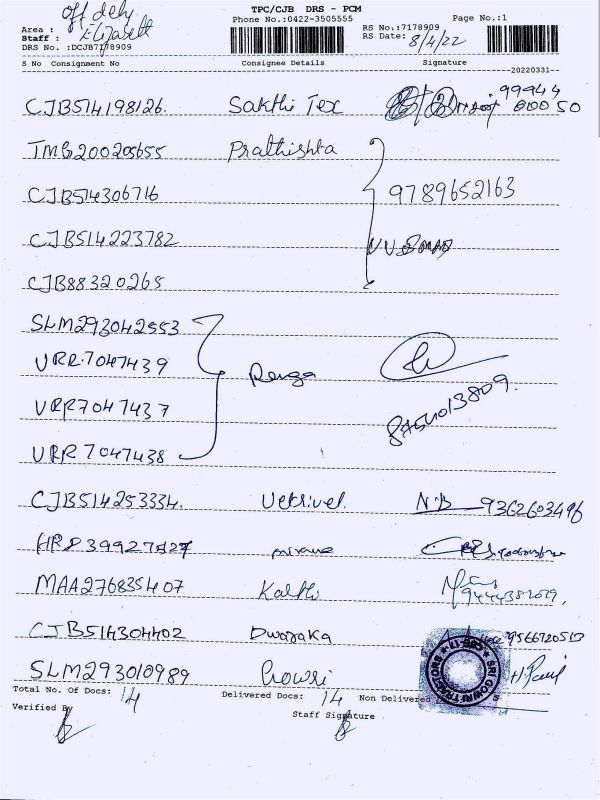 TPC/CJB DRS - PCM
Phone No.:0422-3505555
Page No.:1
Area : off dely
Staff : Elizabeth
DRS No. :DCJB7178909
RS No.:7178909
RS Date: 8/4/22
S No Consignment No Consignee Details Signature
20220331
CJB514198126. Sakthi Tex 99944 00050
TMB200205655 Prathishta
CJB514306716 9789652163
CJB514223782
CJB88320265
SLM293042553
VRR7047439 Renga
VRR7047437
VRR7047438
CJB514253334. Vetrivel N.B 9362603496
MAA276835407 Kalthi
CJB514304402 Dwaraka 9566720513
SLM293010989 Gowri
Total No. Of Docs: 14 Delivered Docs: 14 Non Delivered
Verified By
Staff Signature